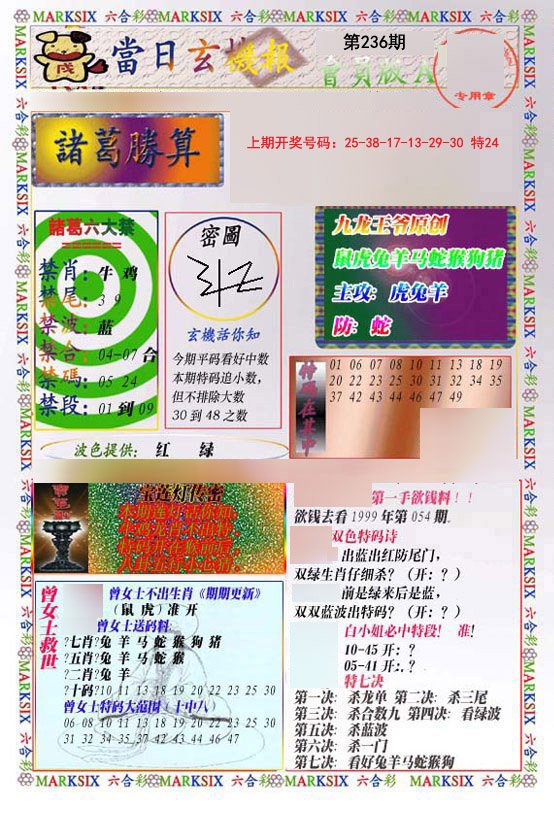 MARKSIX 六合彩 MARKSIX 六合彩 MARKSIX 六合彩 MARKSIX 六合彩 MARKSIX 六合彩
當日玄機報
第236期
會員版A
专用章
諸葛勝算
上期开奖号码：25-38-17-13-29-30 特24
諸葛六大禁
禁肖：牛 鸡
禁尾：3 9
禁波：蓝
禁合：04-07 合
禁碼：05 24
禁段：01 到 09
密圖
玄機話你知
今期平码看好中数
本期特码追小数，
但不排除大数
30 到 48 之数
九龙王爷原创
鼠虎兔羊马蛇猴狗猪
主攻：虎兔羊
防：蛇
特码在其中
01 06 07 08 10 11 13 18 19
20 22 23 25 30 31 32 34 35
37 42 43 44 46 47 49
波色提供： 红 绿
宝莲灯传密
第一手欲钱料！！
欲钱去看 1999 年第 054 期。
双色特码诗
出蓝出红防尾门，
双绿生肖仔细杀？（开：？）
前是绿来后是蓝，
双双蓝波出特码？（开：？）
白小姐必中特段！ 准！
10-45 开：？
05-41 开：.？
特七决
第一决：杀龙单 第二决：杀三尾
第三决：杀合数九 第四决：看绿波
第五决：杀蓝波
第六决：杀一门
第七决：看好兔羊马蛇猴狗
曾女士救世
曾女士不出生肖《期期更新》
（鼠 虎）准 开
曾女士送码料：
?七肖?兔 羊 马 蛇 猴 狗 猪
?五肖?兔 羊 马 蛇 猴
?二肖?兔 羊
?十码?10 11 13 18 19 20 22 23 25 30
曾女士特码大范围（十中八）
06 08 10 11 13 18 19 20 22 23 25 30
31 32 34 35 37 42 43 44 46 47
MARKSIX 六合彩 MARKSIX 六合彩 MARKSIX 六合彩 MARKSIX 六合彩 MARKSIX 六合彩